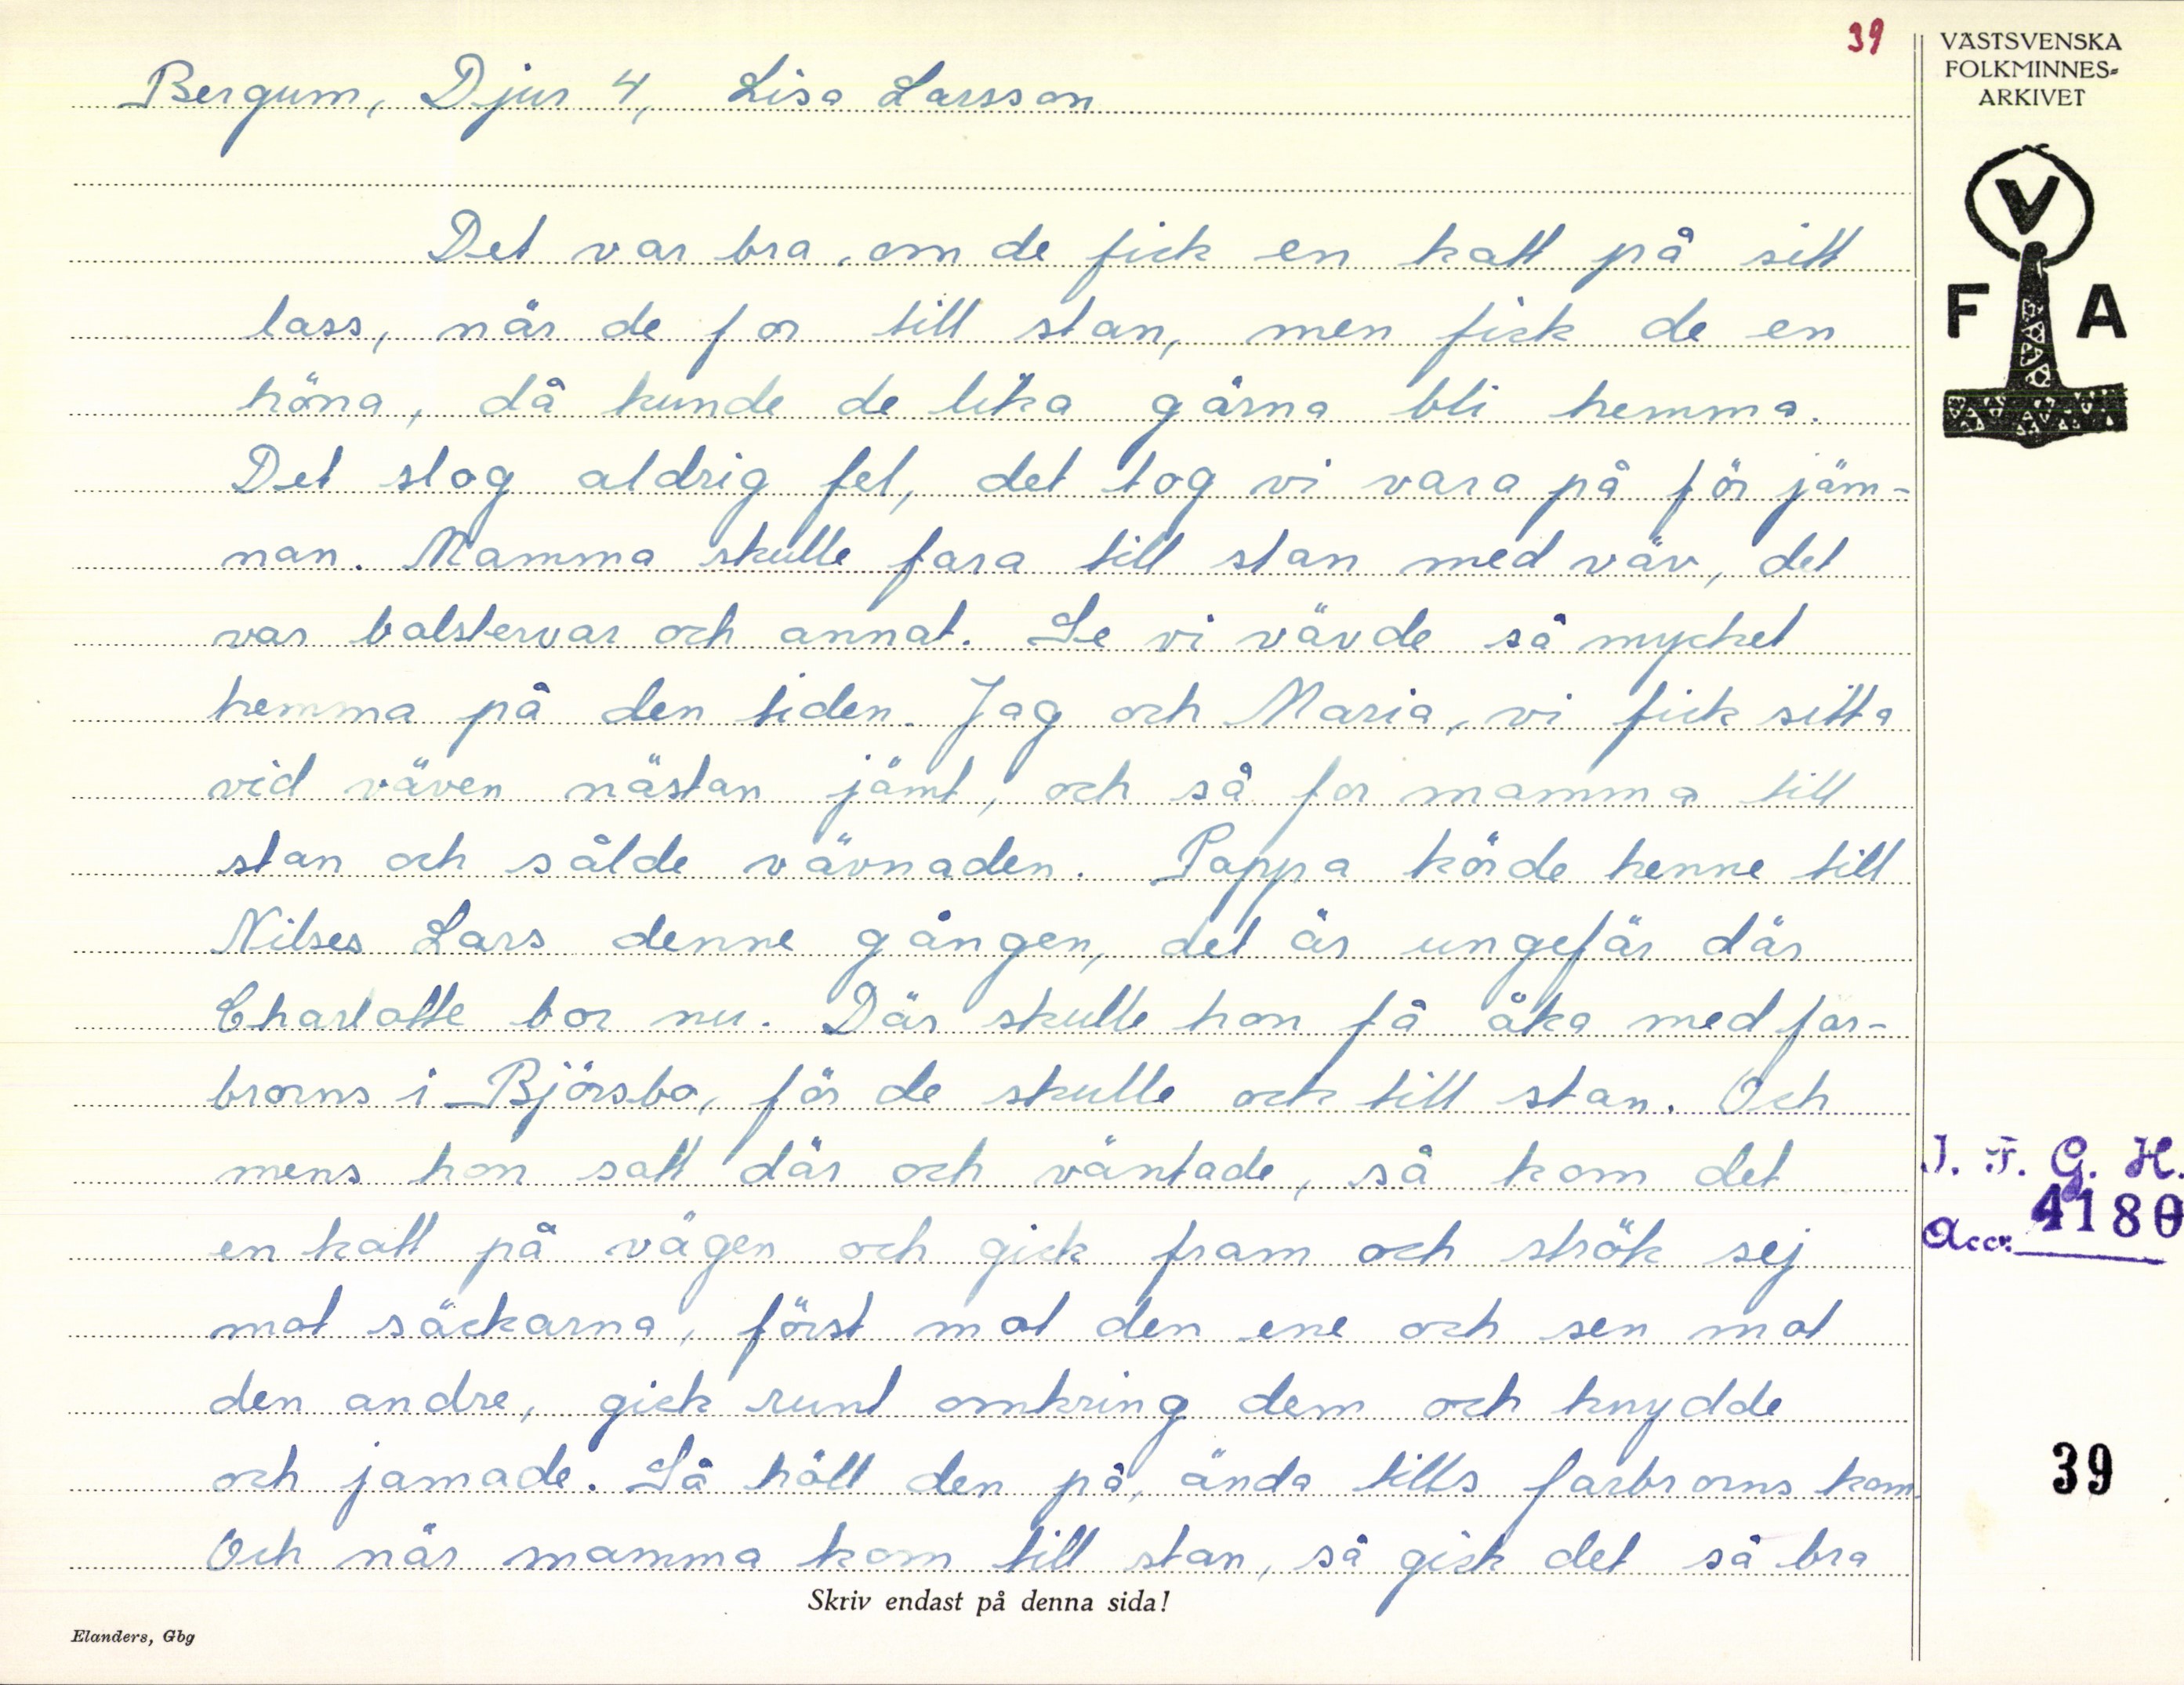 39
Bergum, Djur 4, Lisa Larsson
Det var bra, om de fick en katt på sitt
lass, när de for till stan, men fick de en
höna, då kunde de lika gärna bli hemma.
Det slog aldrig fel, det tog vi vara på för jäm-
nan. Mamma skulle fara till stan med väv, det
var bolstervar och annat. Se vi vävde så mycket
hemma på den tiden. Jag och Maria, vi fick sitta
vid väven nästan jämt, och så for mamma till
stan och sålde vävnaden. Pappa körde henne till
Nilses Lars denne gången, det är ungefär där
Charlotte bor nu. Där skulle hon få åka med far-
brorns i Björsbo, för de skulle och till stan. Och
mens hon satt där och väntade, så kom det
en katt på vägen och gick fram och strök sej
mot säckarna, först mot den ene och sen mot
den andre, gick runt omkring dem och knydde
och jamade. Så höll den på, ända tills farbrorns kom.
Och när mamma kom till stan, så gick det så bra
Skriv endast på denna sida!
Elanders, Gbg
VÄSTSVENSKA
FOLKMINNES-
ARKIVET
V
F A
I. F. G. H.
Acc. 4180
39